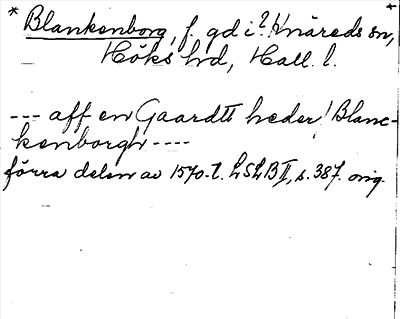 * Blankenborg, f. gd i? Knäreds sn,
Höks hd, Hall. l.
--- aff en Gaardtt heder! Blanc-
kenborgh ----
förra delen av 1570-t. LSLB II, s. 387. orig.